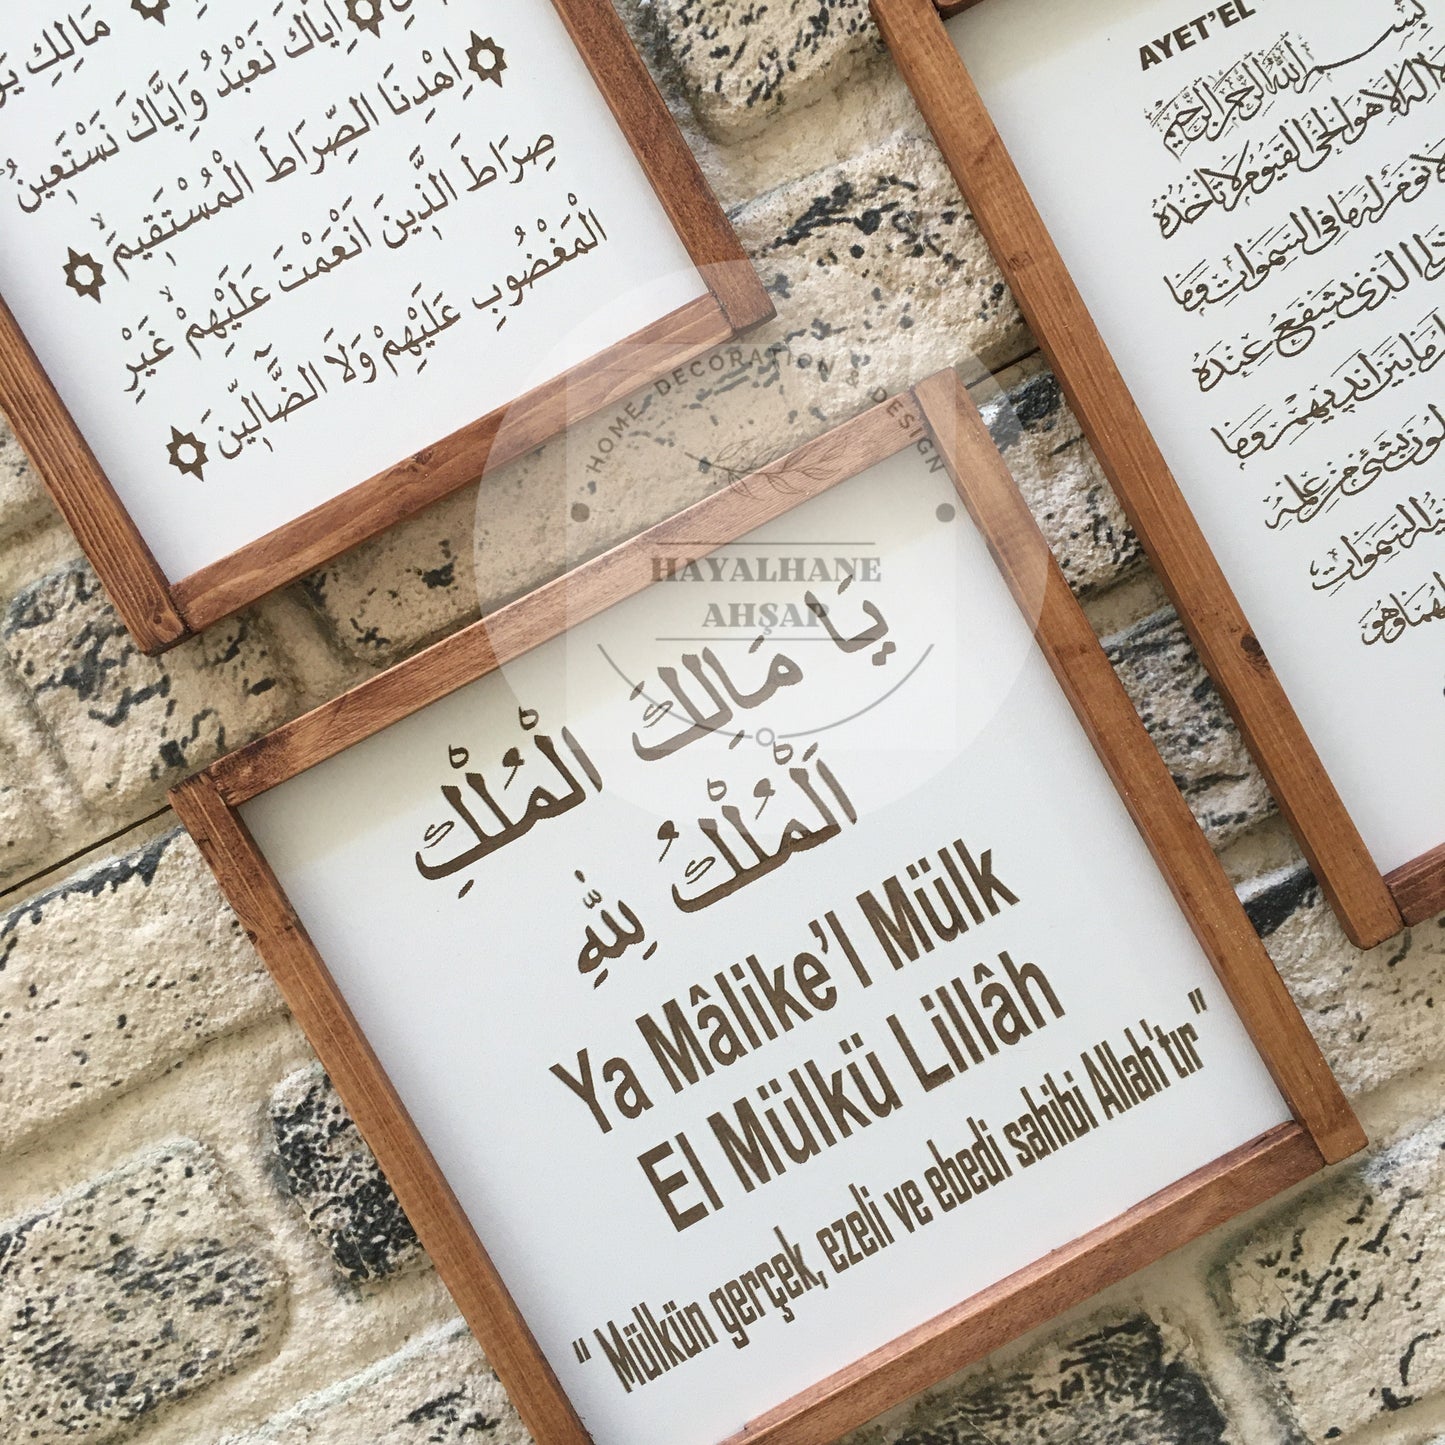 مَالِكِ
اِيَّاكَ نَعْبُدُ وَاِيَّاكَ نَسْتَعِينُ
اِهْدِنَا الصِّرَاطَ الْمُسْتَقِيمَ
صِرَاطَ الَّذِينَ اَنْعَمْتَ عَلَيْهِمْ غَيْرِ
الْمَغْضُوبِ عَلَيْهِمْ وَلَا الضَّالِّينَ
AYET'EL
بِسْمِ اللّٰهِ الرَّحْمٰنِ الرَّحِيمِ
اِلٰهَ اِلَّا هُوَ الْحَيُّ الْقَيُّومُ لَا تَأْخُذُهُ
نَوْمٌ لَهُ مَا فِي السَّمٰوَاتِ وَمَا
ذَا الَّذِي يَشْفَعُ عِنْدَهُ
مَا بَيْنَ اَيْدِيهِمْ وَمَا
بِشَيْءٍ مِنْ عِلْمِهِ
السَّمٰوَاتِ
وَهُوَ
HOME DECORATION & DESIGN
HAYALHANE
AHŞAP
يَا مَالِكَ الْمُلْكِ
اَلْمُلْكُ لِلّٰهِ
Ya Mâlike'l Mülk
El Mülkü Lillâh
“ Mülkün gerçek, ezeli ve ebedi sahibi Allah'tır”